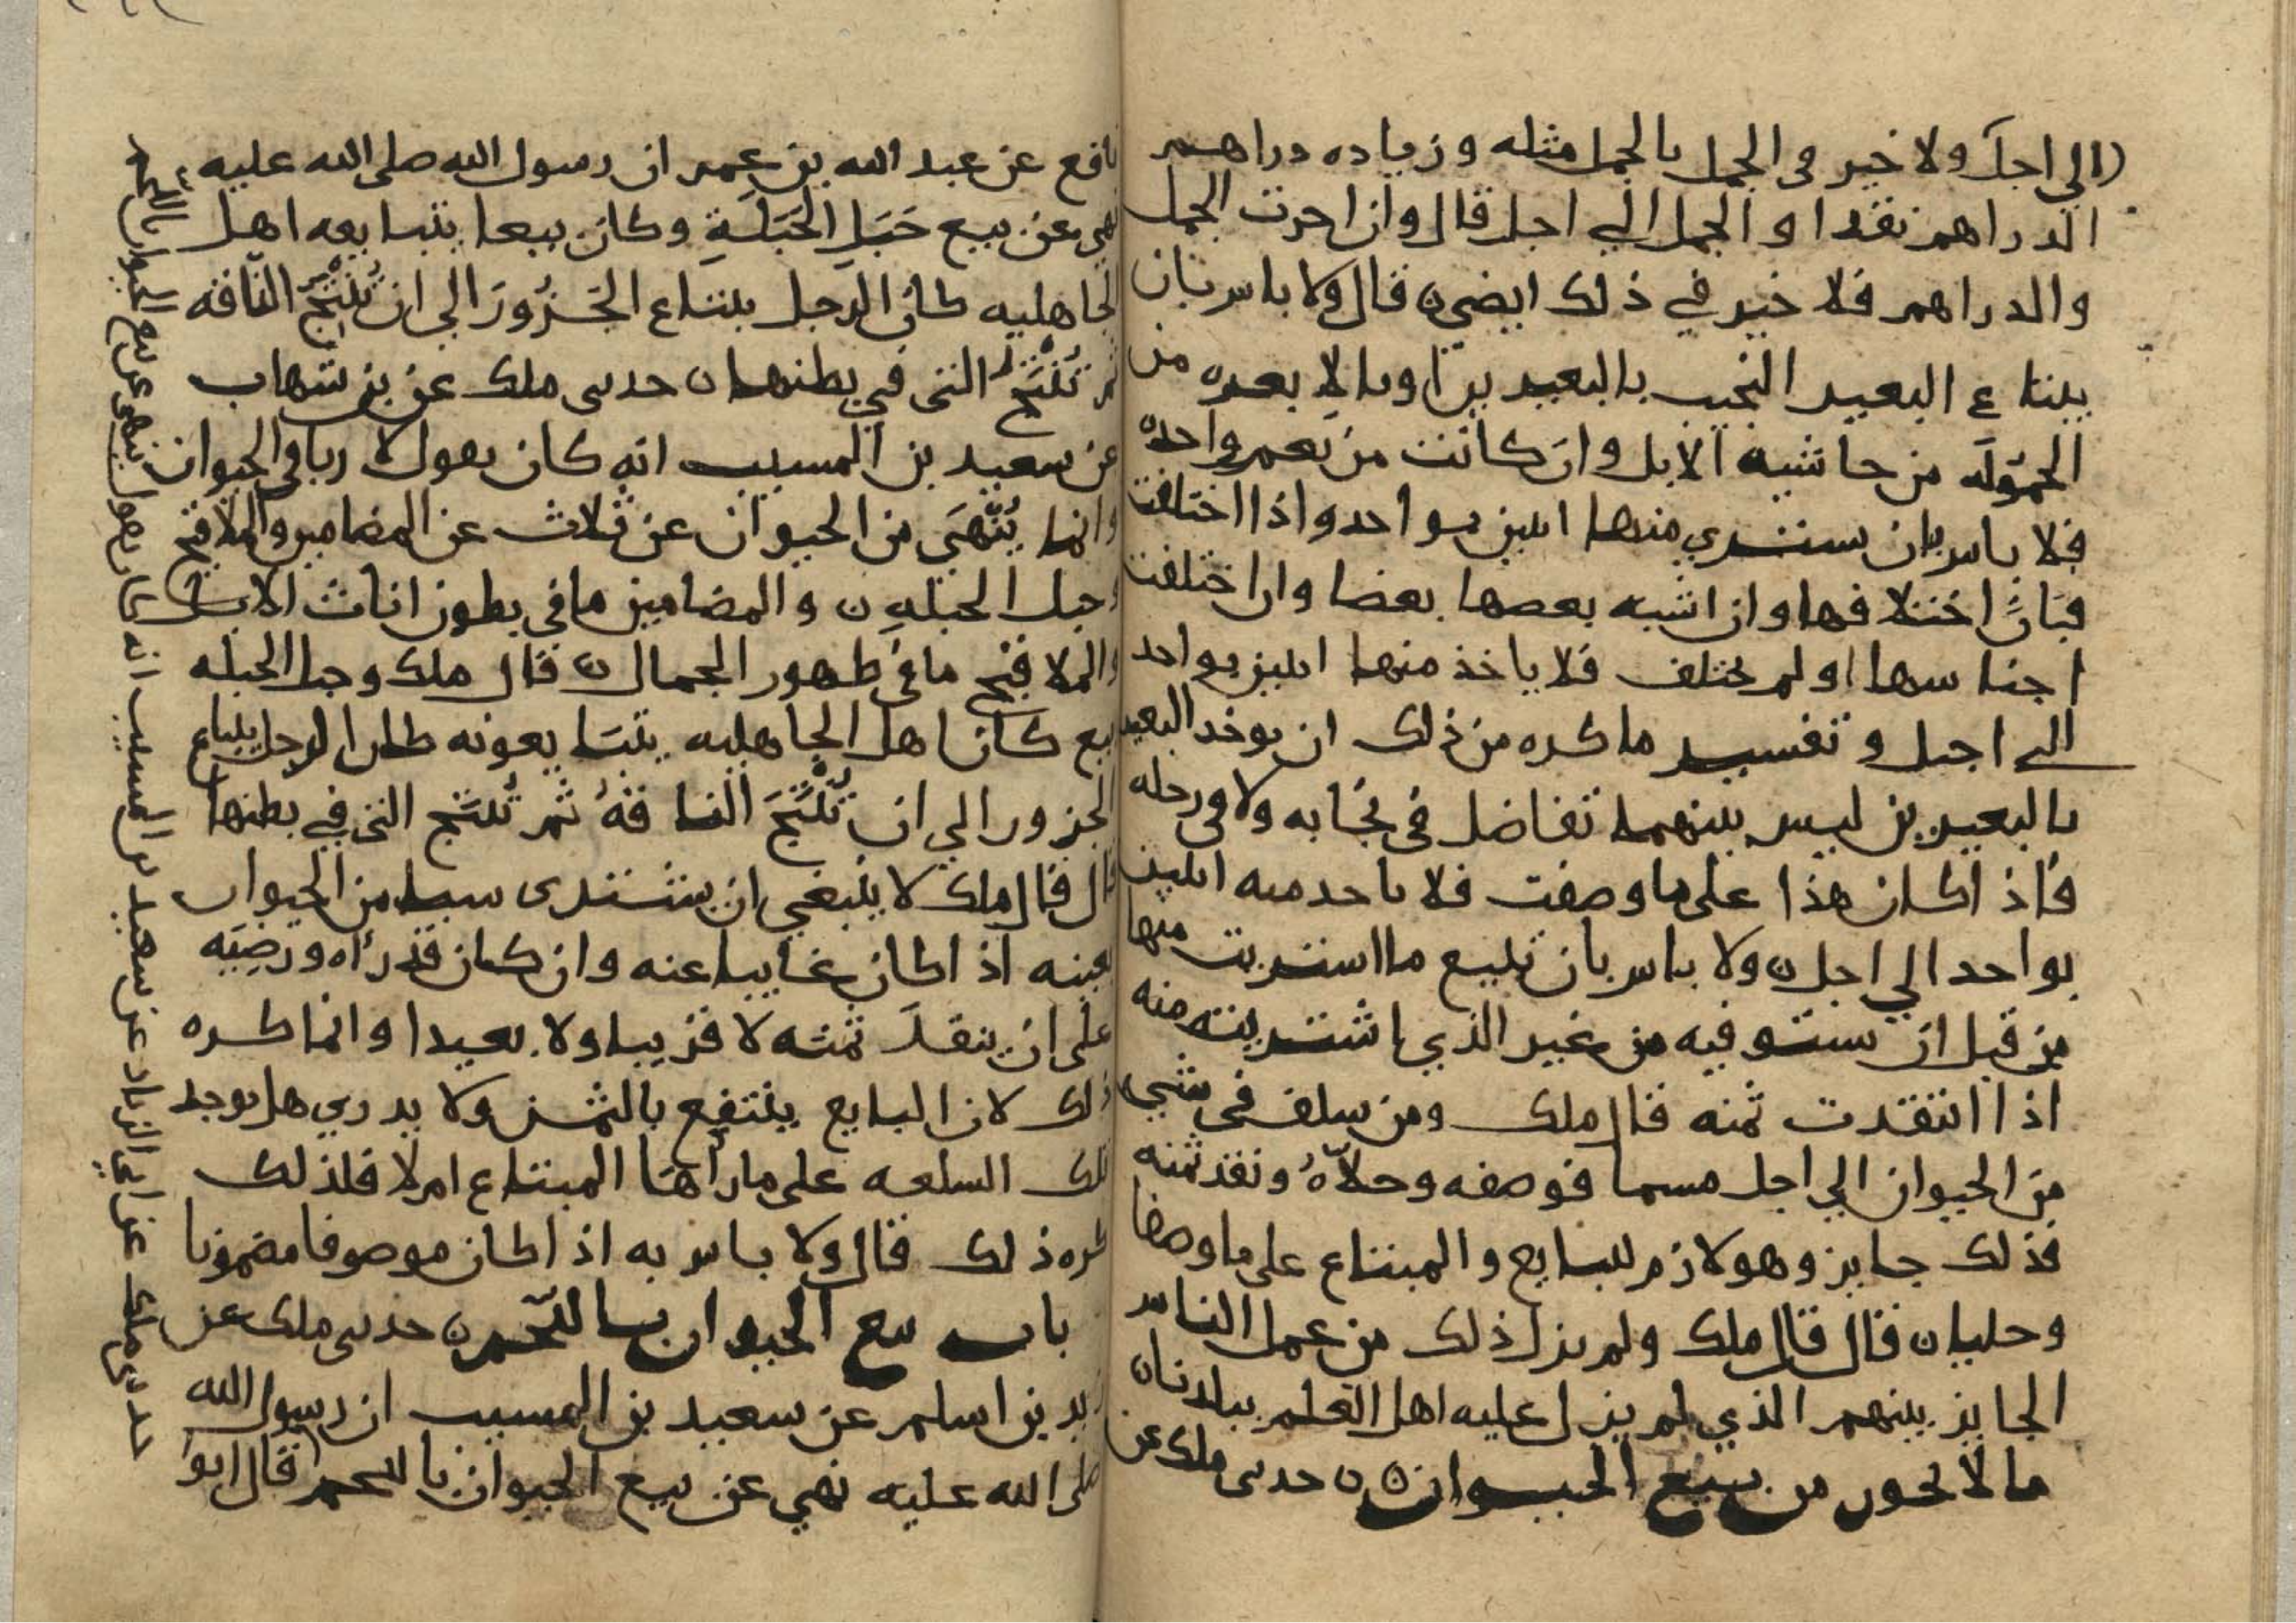 الى اجل ولا خير فى الجمل بالجمل مثله وزياده دراهم
الدراهم نقدا والجمل الي اجل قال وان اخرت الجمل
والدراهم فلا خير في ذلك ايضى ن قال ولا باس بان
يبتاع البعير النجيب بالبعيرين او بالابعره من
الحموله من حاشيه الابل وان كانت من نعم واحده
فلا باس بان يشتري منها اثنين بواحد واذا اختلفت
فبان اختلافها وان اشبه بعضها بعضا وان اختلفت
اجناسها او لم يختلف فلا ياخذ منها اثنين بواحد
الى اجل وتفسير ما كره من ذلك ان يوخذ البعير
بالبعيرين ليس بينهما تفاضل في نجابه ولا في رحله
فاذا كان هذا على ما وصفت فلا ياخذ منه اثنين
بواحد الي اجل ن ولا باس بان تبيع ما اشتريت منها
من قبل ان ستوفيه من غير الذي اشتريته منه
اذا انتقدت ثمنه قال ملك ومن سلف في شي
من الحيوان الي اجل مسما فوصفه وحلاه ونقد ثمنه
فذلك جايز وهو لازم للبايع والمبتاع على ما وصفا
وحليا ن قال قال ملك ولم يزل ذلك من عمل الناس
الجايز بينهم الذي لم يزل عليه اهل العلم ببلدنا ن
ما لا يجوز من بيع الحيوان ن حدثنى ملك عن
نافع عن عبد الله بن عمر ان رسول الله صلى الله عليه
نهي عن بيع حَبَلِ الحَبَلَةِ وكان بيعا يتبايعه اهل
الجاهليه كان الرجل يبتاع الجَزُورَ الي ان تُنْتَجَ النّاقه
ثم تُنْتَجُ التى في بطنها ن حدثنى ملك عن بن شهاب
عن سعيد بن المسيب انه كان يقول لا ربا في الحيوان
وانما يُنْهَى من الحيوان عن ثلاث عن المضامين والملاقيح
وحبل الحبله ن والمضامين ما في بطون اناث الابل
والملاقيح ما في ظهور الجمال ن قال ملك وحبل الحبله
بيع كان اهل الجاهليه يتبايعونه كان الرجل يبتاع
الجزور الي ان تُنْتَجَ الناقةُ ثم تُنتَج التى في بطنها
قال قال ملك لا ينبغي ان يشترى شيا من الحيوان
بعينه اذا كان غايبا عنه وان كان قد رآه ورضيَه
على ان ينقدَ ثمنه لا قريبا ولا بعيدا وانما كره
ذلك لان البايع ينتفع بالثمن ولا يدري هل يوجد
تلك السلعه على ما رأها المبتاع ام لا فلذلك
كره ذلك قال ولا باس به اذا كان موصوفا مضمونا
باب بيع الحيوان باللّحم ن حدثنى ملك عن
زيد بن اسلم عن سعيد بن المسيب ان رسول الله
صلى الله عليه نهي عن بيع الحيوان باللحم قال ابو
حدثنى ملك عن ابي الزناد عن سعيد بن المسيب انه كان يقول ينهى عن بيع الحيوان باللحم